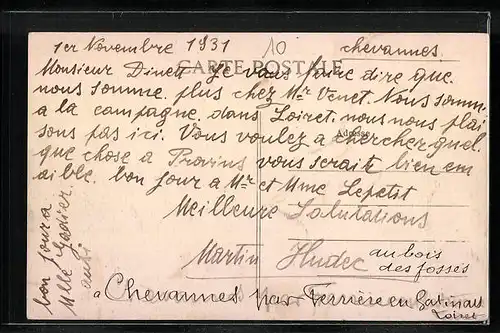 1er Novembre 1931 10 chevannes.
CARTE POSTALE
Monsieur Dinett Je vous faire dire que.
nous somme. plus chez Mr Venet. Nous somm.
a la campagne. dans Loiret. nous nous plai
Adresse
sons pas ici. Vous voulez a chercher quel.
que chose a Provins vous serait bien em
aible. bon jour a Mr et Mme Lepetit
Meilleure Salutations
Martin Hudec au bois
des fosses
a Chevannes par Ferrière en Gatinais
Loiret
bon jour a
Mlle
aussi